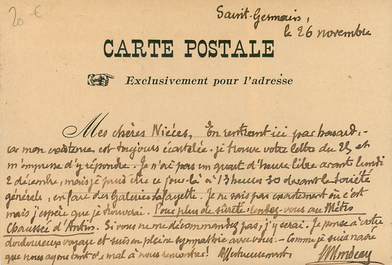 20 €
Saint-Germain,
le 26 novembre
CARTE POSTALE
Exclusivement pour l'adresse
Mes chères Nièces, En rentrant ici par hasard -
car mon existence est toujours écartelée. je trouve votre lettre du 25 et
m'empresse d'y répondre. Je n'ai pas un quart d'heure libre avant lundi
2 décembre, mais je puis être ce jour-là à 13 heures 30 devant la Société
générale, en face des Galeries Lafayette. Je ne sais pas exactement où c'est
mais j'espère que je trouverai. Pour plus de sûreté : rendez-vous au Métro
Chaussée d'Antin. Si vous ne me décommandez pas, j'y serai. Je pense à votre
douloureux voyage et suis en pleine sympathie avec vous. - Comme je suis navré
que nous ayons tant de mal à nous rencontrer! Affectueusement.